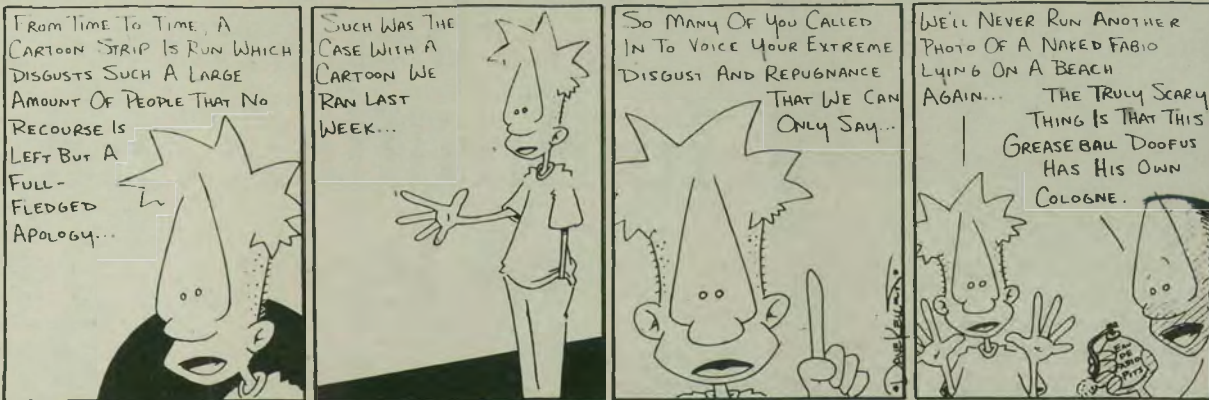 From Time To Time, A
Cartoon Strip Is Run Which
Disgusts Such A Large
Amount Of People That No
Recourse Is
Left But A
Full-
Fledged
Apology...
Such Was The
Case With A
Cartoon We
Ran Last
Week...
So Many Of You Called
In To Voice Your Extreme
Disgust And Repugnance
That We Can
Only Say...
We'll Never Run Another
Photo Of A Naked Fabio
Lying On A Beach
Again...
The Truly Scary
Thing Is That This
Greaseball Doofus
Has His Own
Cologne.
Eau
De
Fabio
Pits